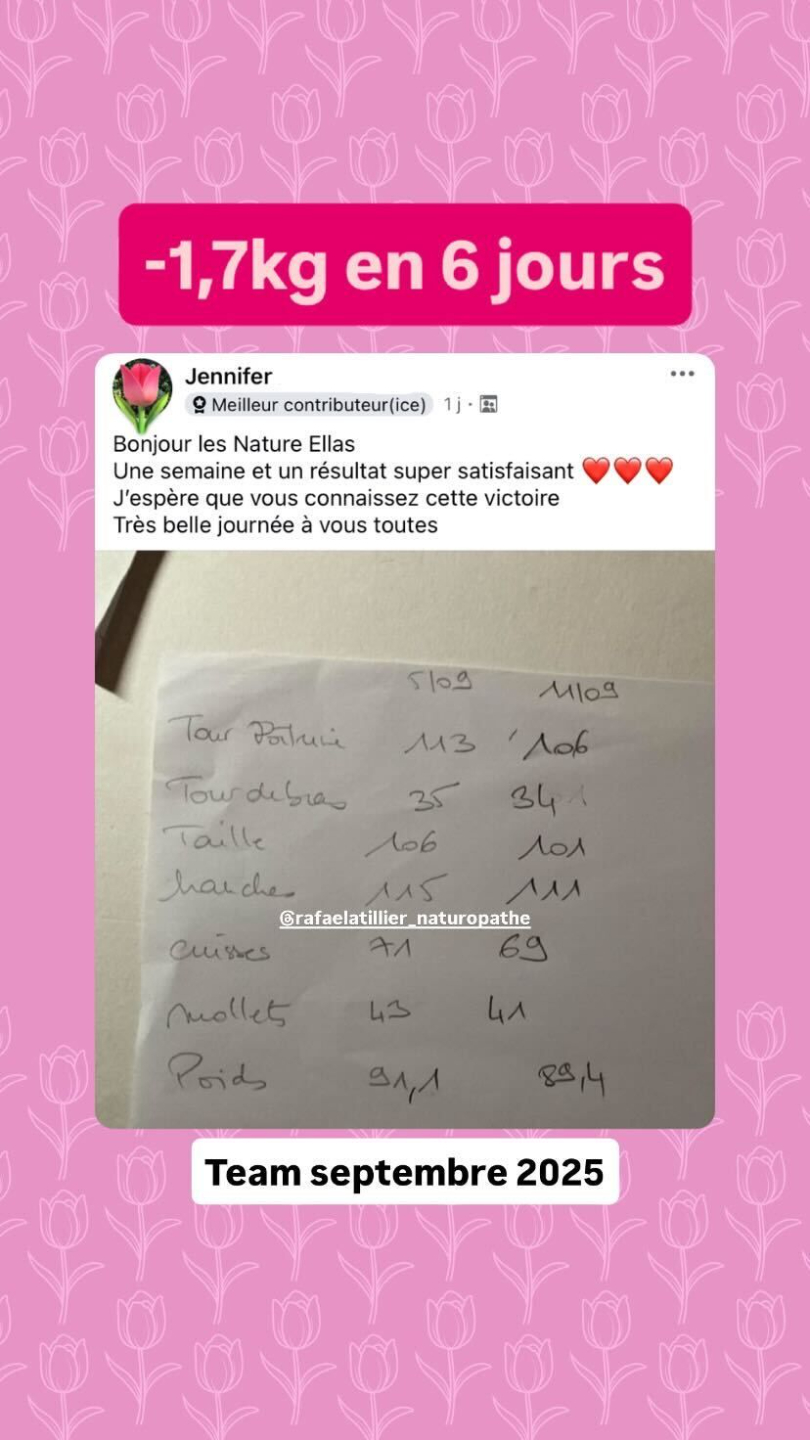 -1,7kg en 6 jours
Jennifer
Meilleur contributeur(ice) 1 j ·
Bonjour les Nature Ellas
Une semaine et un résultat super satisfaisant ❤️❤️❤️
J’espère que vous connaissez cette victoire
Très belle journée à vous toutes
5/09 11/09
Tour Poitrine 113 106
Tour de bras 35 34
Taille 106 101
hanches 115 111
@rafaelatillier_naturopathe
cuisses 71 69
mollets 43 41
Poids 91,1 89,4
Team septembre 2025